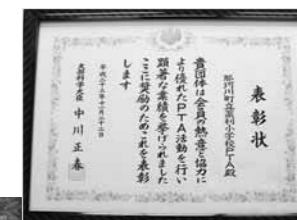 表彰状
那珂川町立薬利小学校PTA殿
貴団体は会員の熱意と協力に
より優れたPTA活動を行い
顕著な業績を挙げられました
ここに奨励のためこれを表彰
します
平成二十三年十一月二十二日
文部科学大臣 中川正春